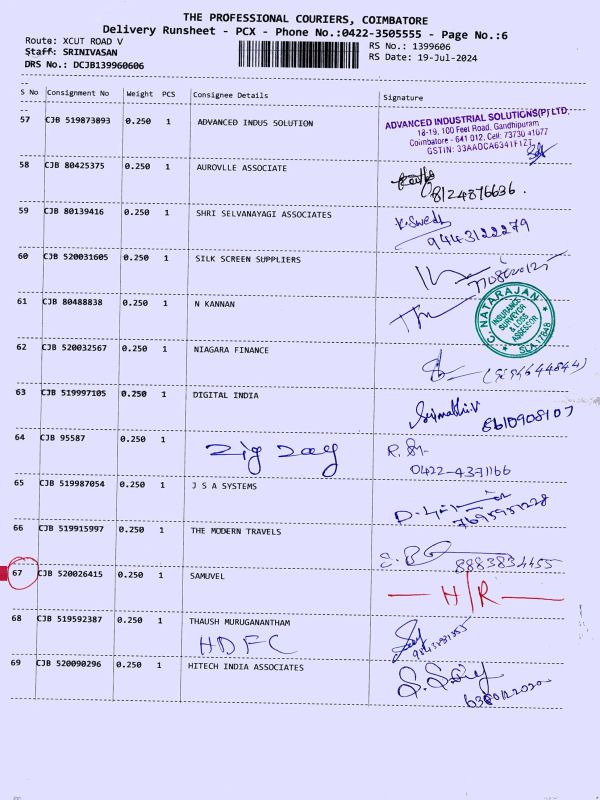 THE PROFESSIONAL COURIERS, COIMBATORE
Delivery Runsheet - PCX - Phone No.:0422-3505555 - Page No.:6
Route: XCUT ROAD V
RS No.: 1399606
Staff: SRINIVASAN
RS Date: 19-Jul-2024
DRS No.: DCJB139960606
S No Consignment No Weight PCS Consignee Details Signature
57 CJB 519873893 0.250 1 ADVANCED INDUS SOLUTION
ADVANCED INDUSTRIAL SOLUTIONS(P) LTD.
18-19, 100 Feet Road, Gandhipuram
Coimbatore - 641 012, Cell: 73730 41077
GSTIN: 33AAOCA6341F1ZT
58 CJB 80425375 0.250 1 AUROVLLE ASSOCIATE
8124876636.
59 CJB 80139416 0.250 1 SHRI SELVANAYAGI ASSOCIATES
9443122279
60 CJB 520031605 0.250 1 SILK SCREEN SUPPLIERS
61 CJB 80488838 0.250 1 N KANNAN
C. NATARAJAN
INSURANCE
SURVEYOR
& LOSS
ASSESSOR
62 CJB 520032567 0.250 1 NIAGARA FINANCE
63 CJB 519997105 0.250 1 DIGITAL INDIA
Srimathi.V
8610908107
64 CJB 95587 0.250 1 Zig Zag
0422-4371166
65 CJB 519987054 0.250 1 J S A SYSTEMS
66 CJB 519915997 0.250 1 THE MODERN TRAVELS
8883834455
67 CJB 520026415 0.250 1 SAMUVEL
H/R
68 CJB 519592387 0.250 1 THAUSH MURUGANANTHAM
HDFC
69 CJB 520090296 0.250 1 HITECH INDIA ASSOCIATES